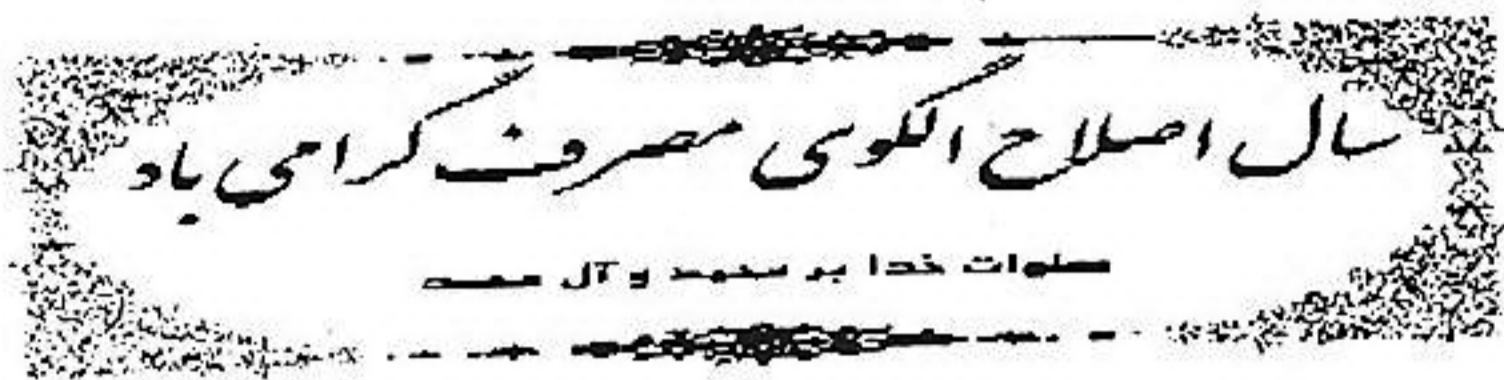 سال اصلاح الگوی مصرف گرامی باد
صلوات خدا بر محمد و آل محمد